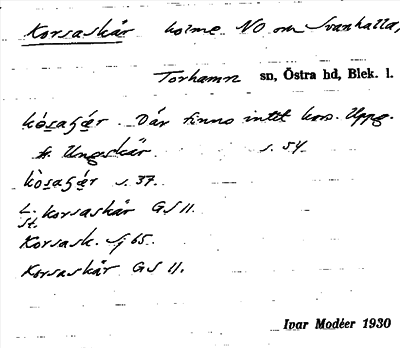 Korsaskär holme NO om Svanhalla,
Torhamn sn, Östra hd, Blek. l.
kòsaʃǽr. Där finns intet kors. Uppg.
fr. Ungskär. s. 54.
kòsaʃǽr s. 37.
L. St. korsaskär GS 11.
Korsask. Sj 65.
Korsaskär GS 11.
Ivar Modéer 1930